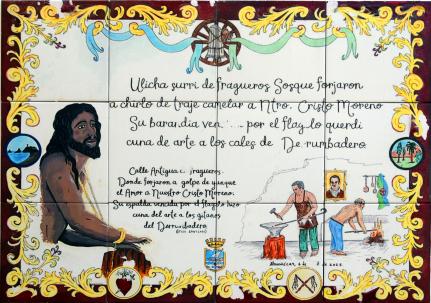 Ulicha surri de fragueros Sosque forjaron
a chirlo de traje camelar a Ntro. Cristo Moreno
Su baraldia ven por el flag lo querdi
cuna de arte a los cales de De rumbadero.
Calle Antigua Fragueros.
Donde forjaron a golpe de yunque
el Amor a Nuestro Cristo Moreno.
Su espalda vencida por el flagelo hizo
cuna del arte a los gitanos
del Derrumbadero